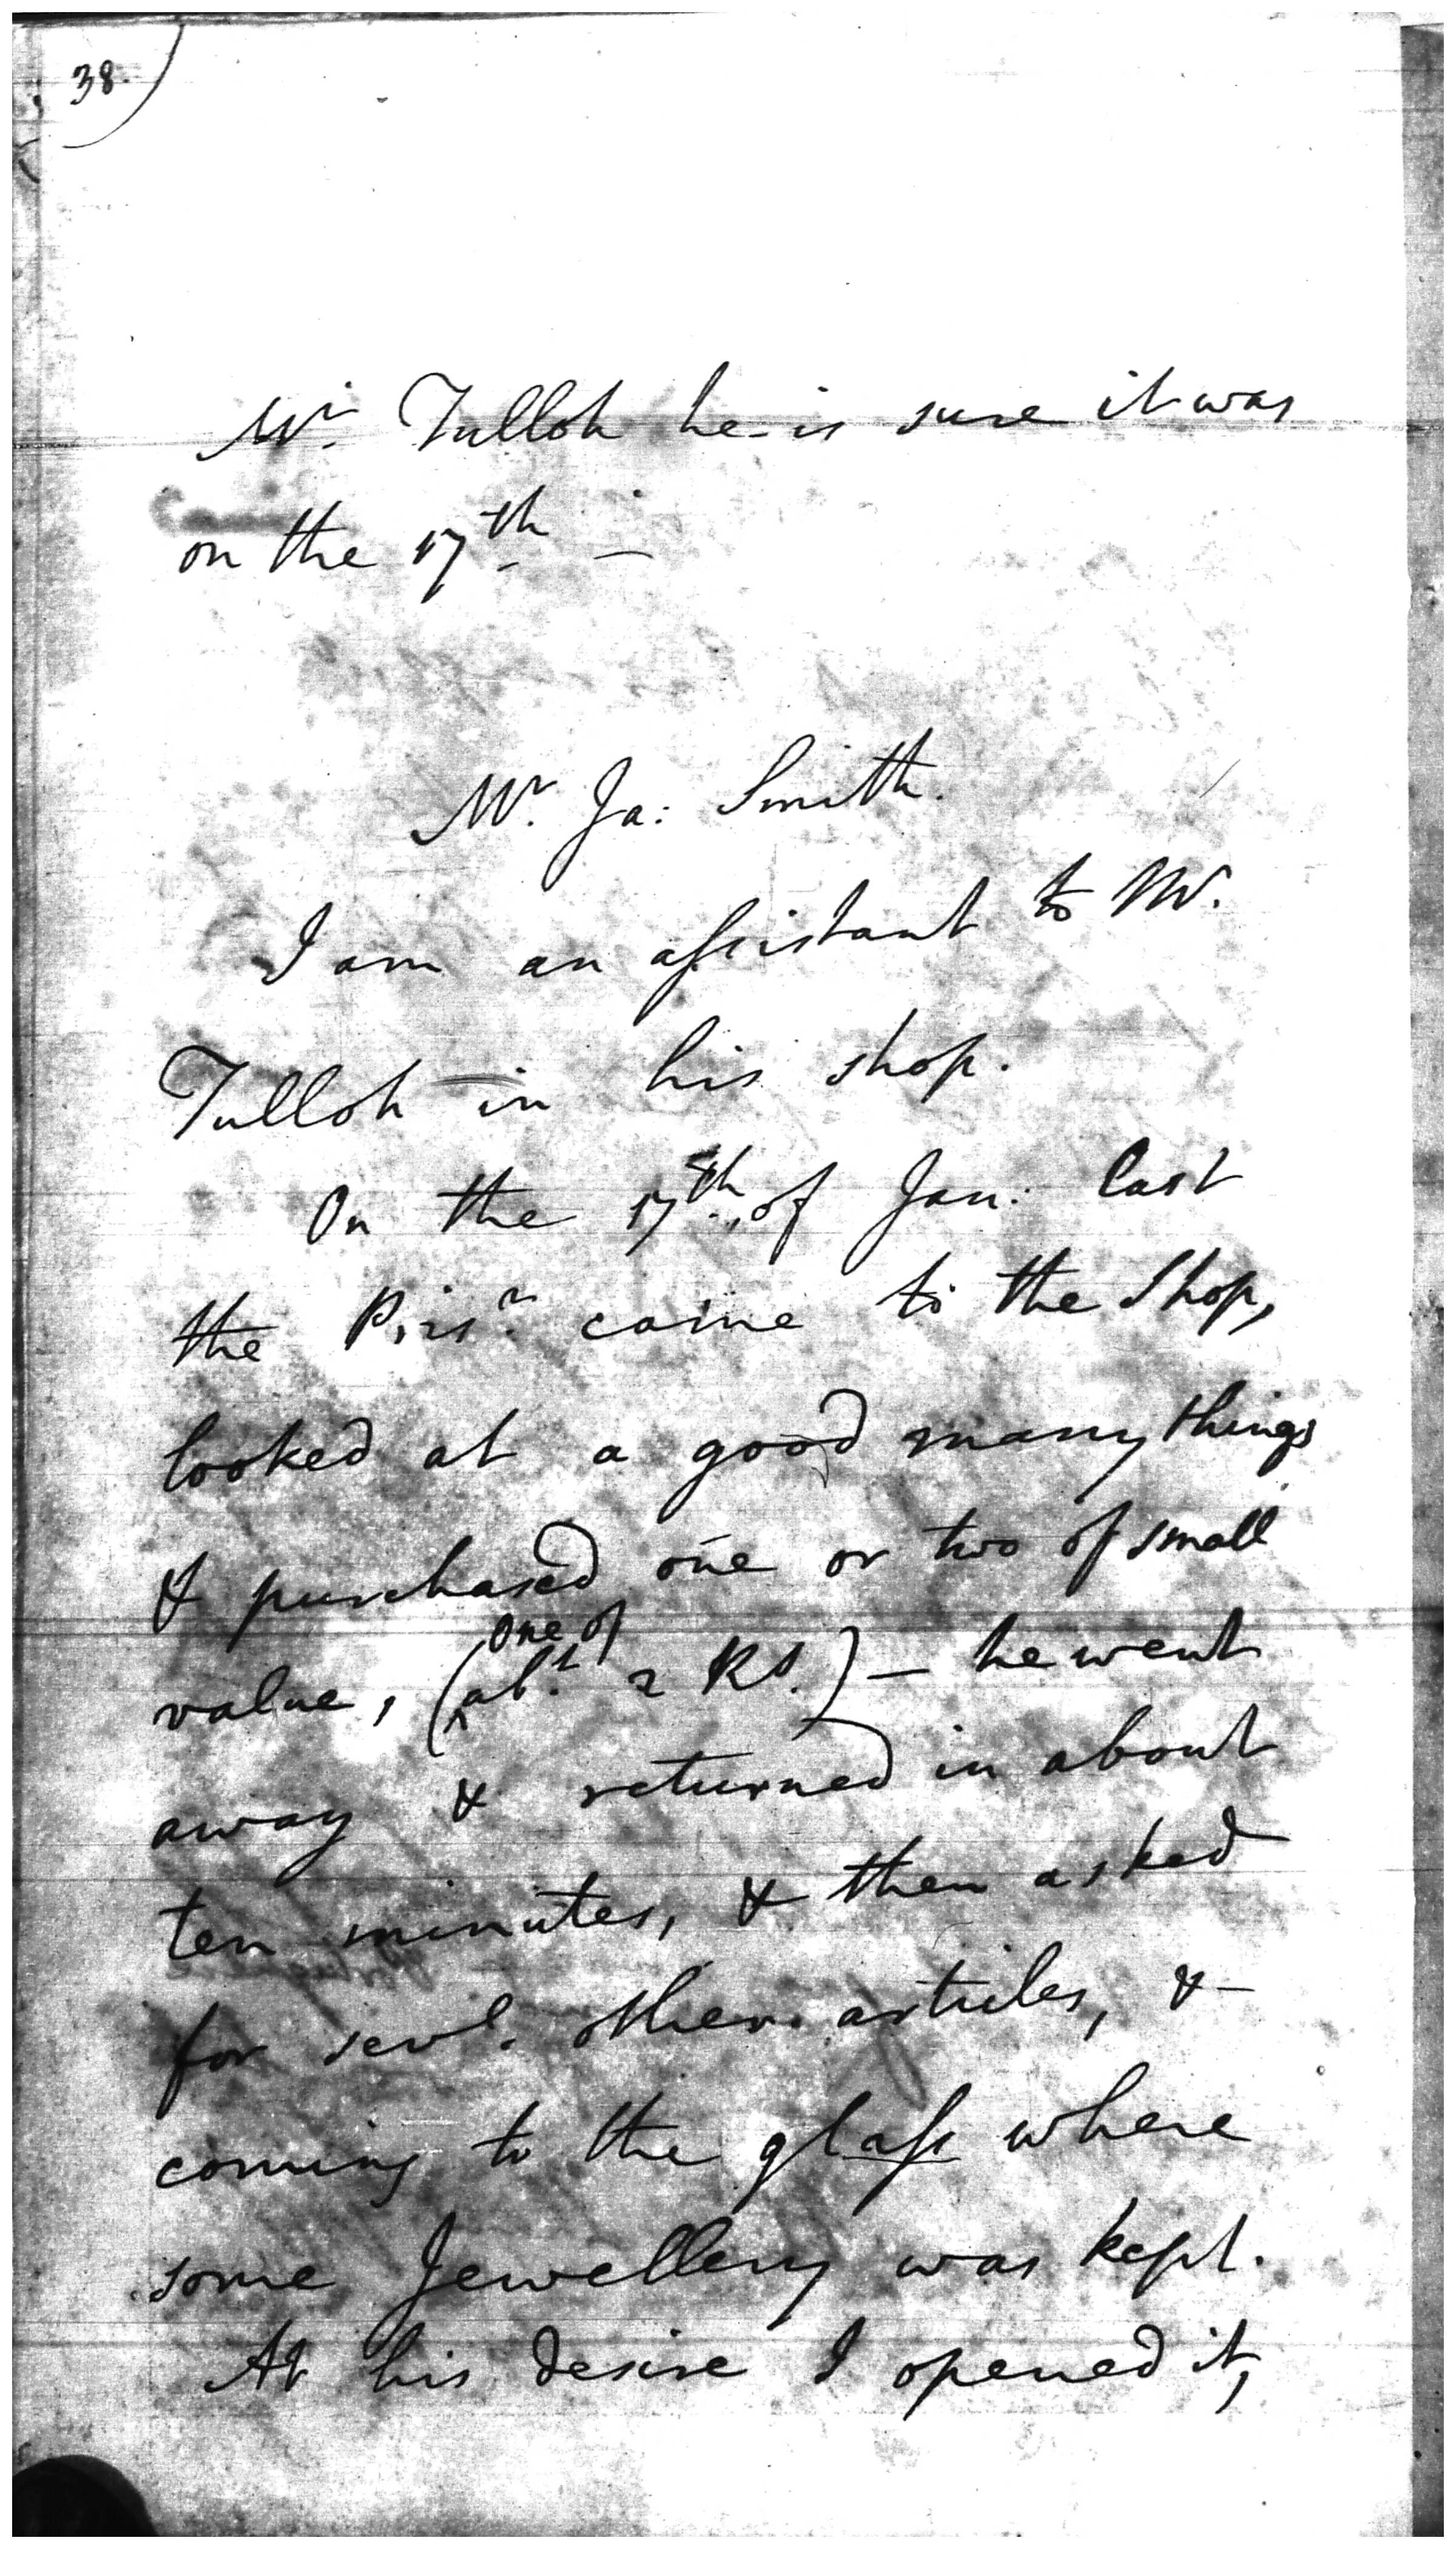 38.
Mr. Tulloh he is sure it was
on the 17th —
Mr. Ja: Smith.
I am an assistant to Mr.
Tulloh in his shop.
On the 17th. of Jan: last
the Prisr. came to the Shop,
looked at a good many things
& purchased one or two of small
one of
value, (abt. 2 Rs.) — he went
away & returned in about
ten minutes, & then asked
for sevl. other articles, & —
coming to the glass where
some Jewellery was kept.
At his desire I opened it,